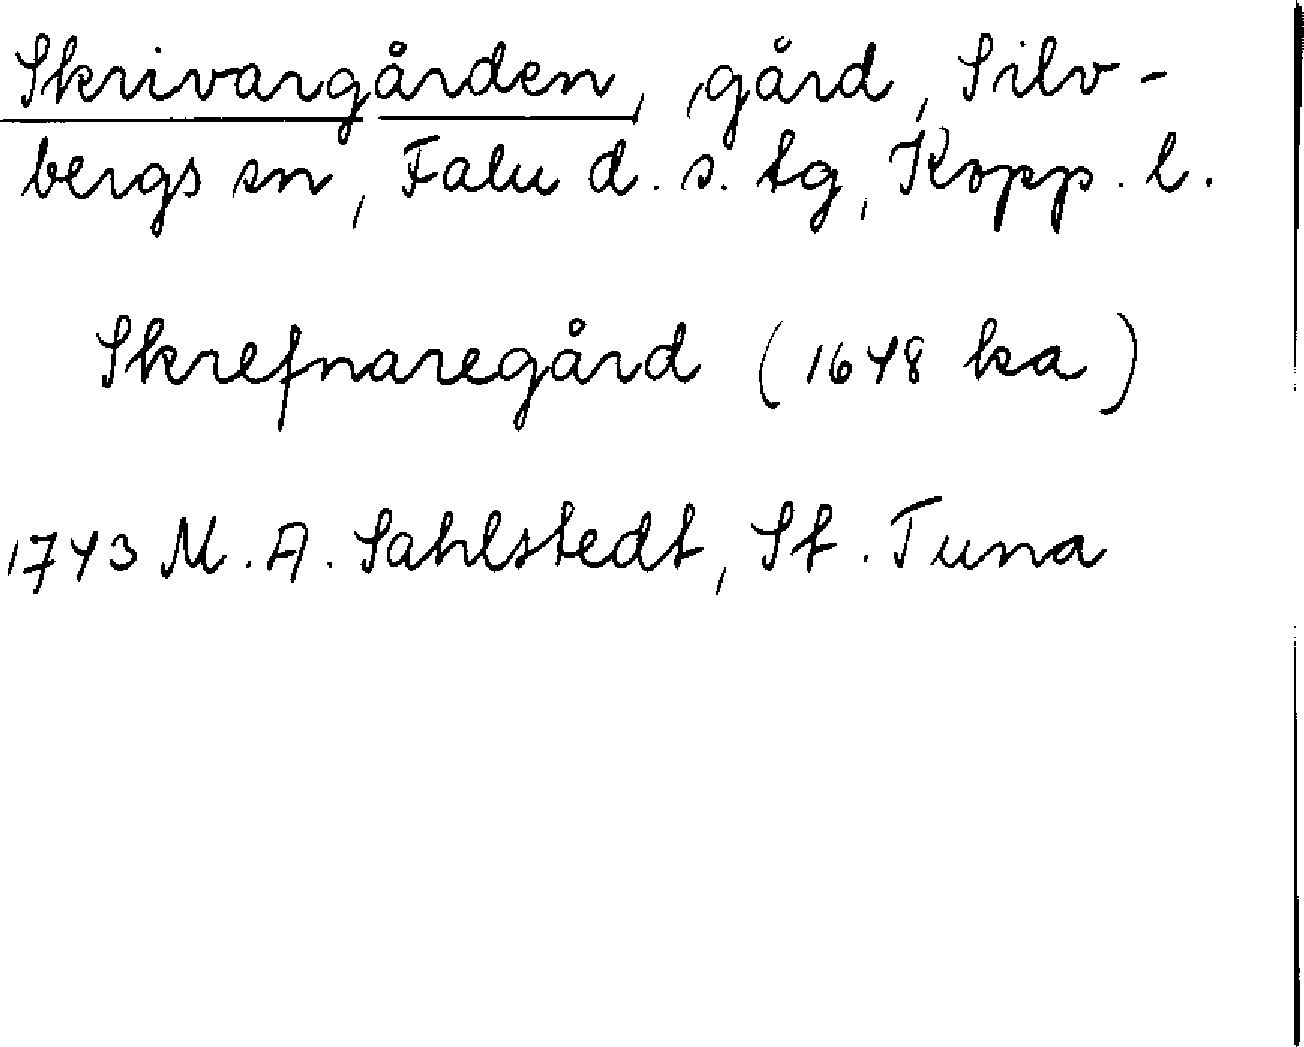 Skrivargården, gård, Silv-
bergs sn, Falu d. s. tg, Kopp. l.
Skrefnaregård (1648 ka)
1743 M. A. Sahlstedt, St. Tuna